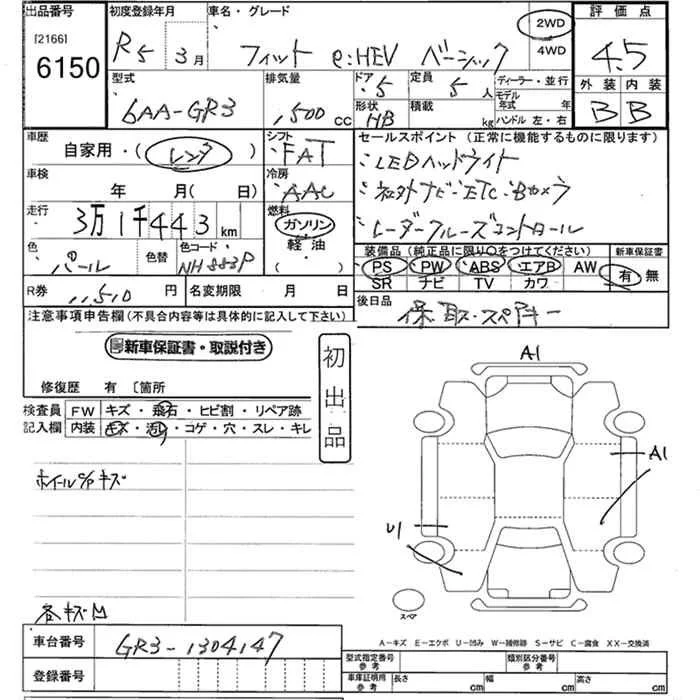 出品番号 初度登録年月 車名・グレード 評価点
[2166] 6150 R5年 3月 フィット e:HEV ベーシック 2WD 4WD 4.5
型式 排気量 ドア 5 定員 5人 ディーラー・並行 外装 内装
6AA-GR3 1,500cc 形状 HB 積載 kg モデル年式 年 ハンドル 左・右 B B
車歴 シフト セールスポイント(正常に機能するものに限ります)
自家用・(レンタ) FAT ・LEDヘッドライト
車検 冷房 ・社外ナビ・ETC・Bカメラ
年 月(日) AAC ・レーダークルーズコントロール
走行 燃料
3万1千443km ガソリン
色 色替 色コード 軽油 装備品(純正品に限り〇をつけてください) 新車保証書
パール NH883P ( ) PS PW ABS エアB AW 有 無
SR ナビ TV カワ
R券 11,510円 名変期限 月 日 後日品
注意事項申告欄(不具合内容等は具体的に記入して下さい) 保・取・スペアキー
新車保証書・取説付き 初出品
修復歴 有 〔箇所
検査員 FW キズ・飛石・ヒビ割・リペア跡
記入欄 内装 キズ・汚レ・コゲ・穴・スレ・キレ
A1
A1
ホイールC/Pキズ
U1
スペア
各キズ凹
A-キズ E-エクボ U-凹み W-補修跡 S-サビ C-腐食 XX-交換済
車台番号 GR3-1304147
型式指定番号 参考 類別区分番号 参考
登録番号
車庫証明用 参考 長さ cm 幅 cm 高さ cm